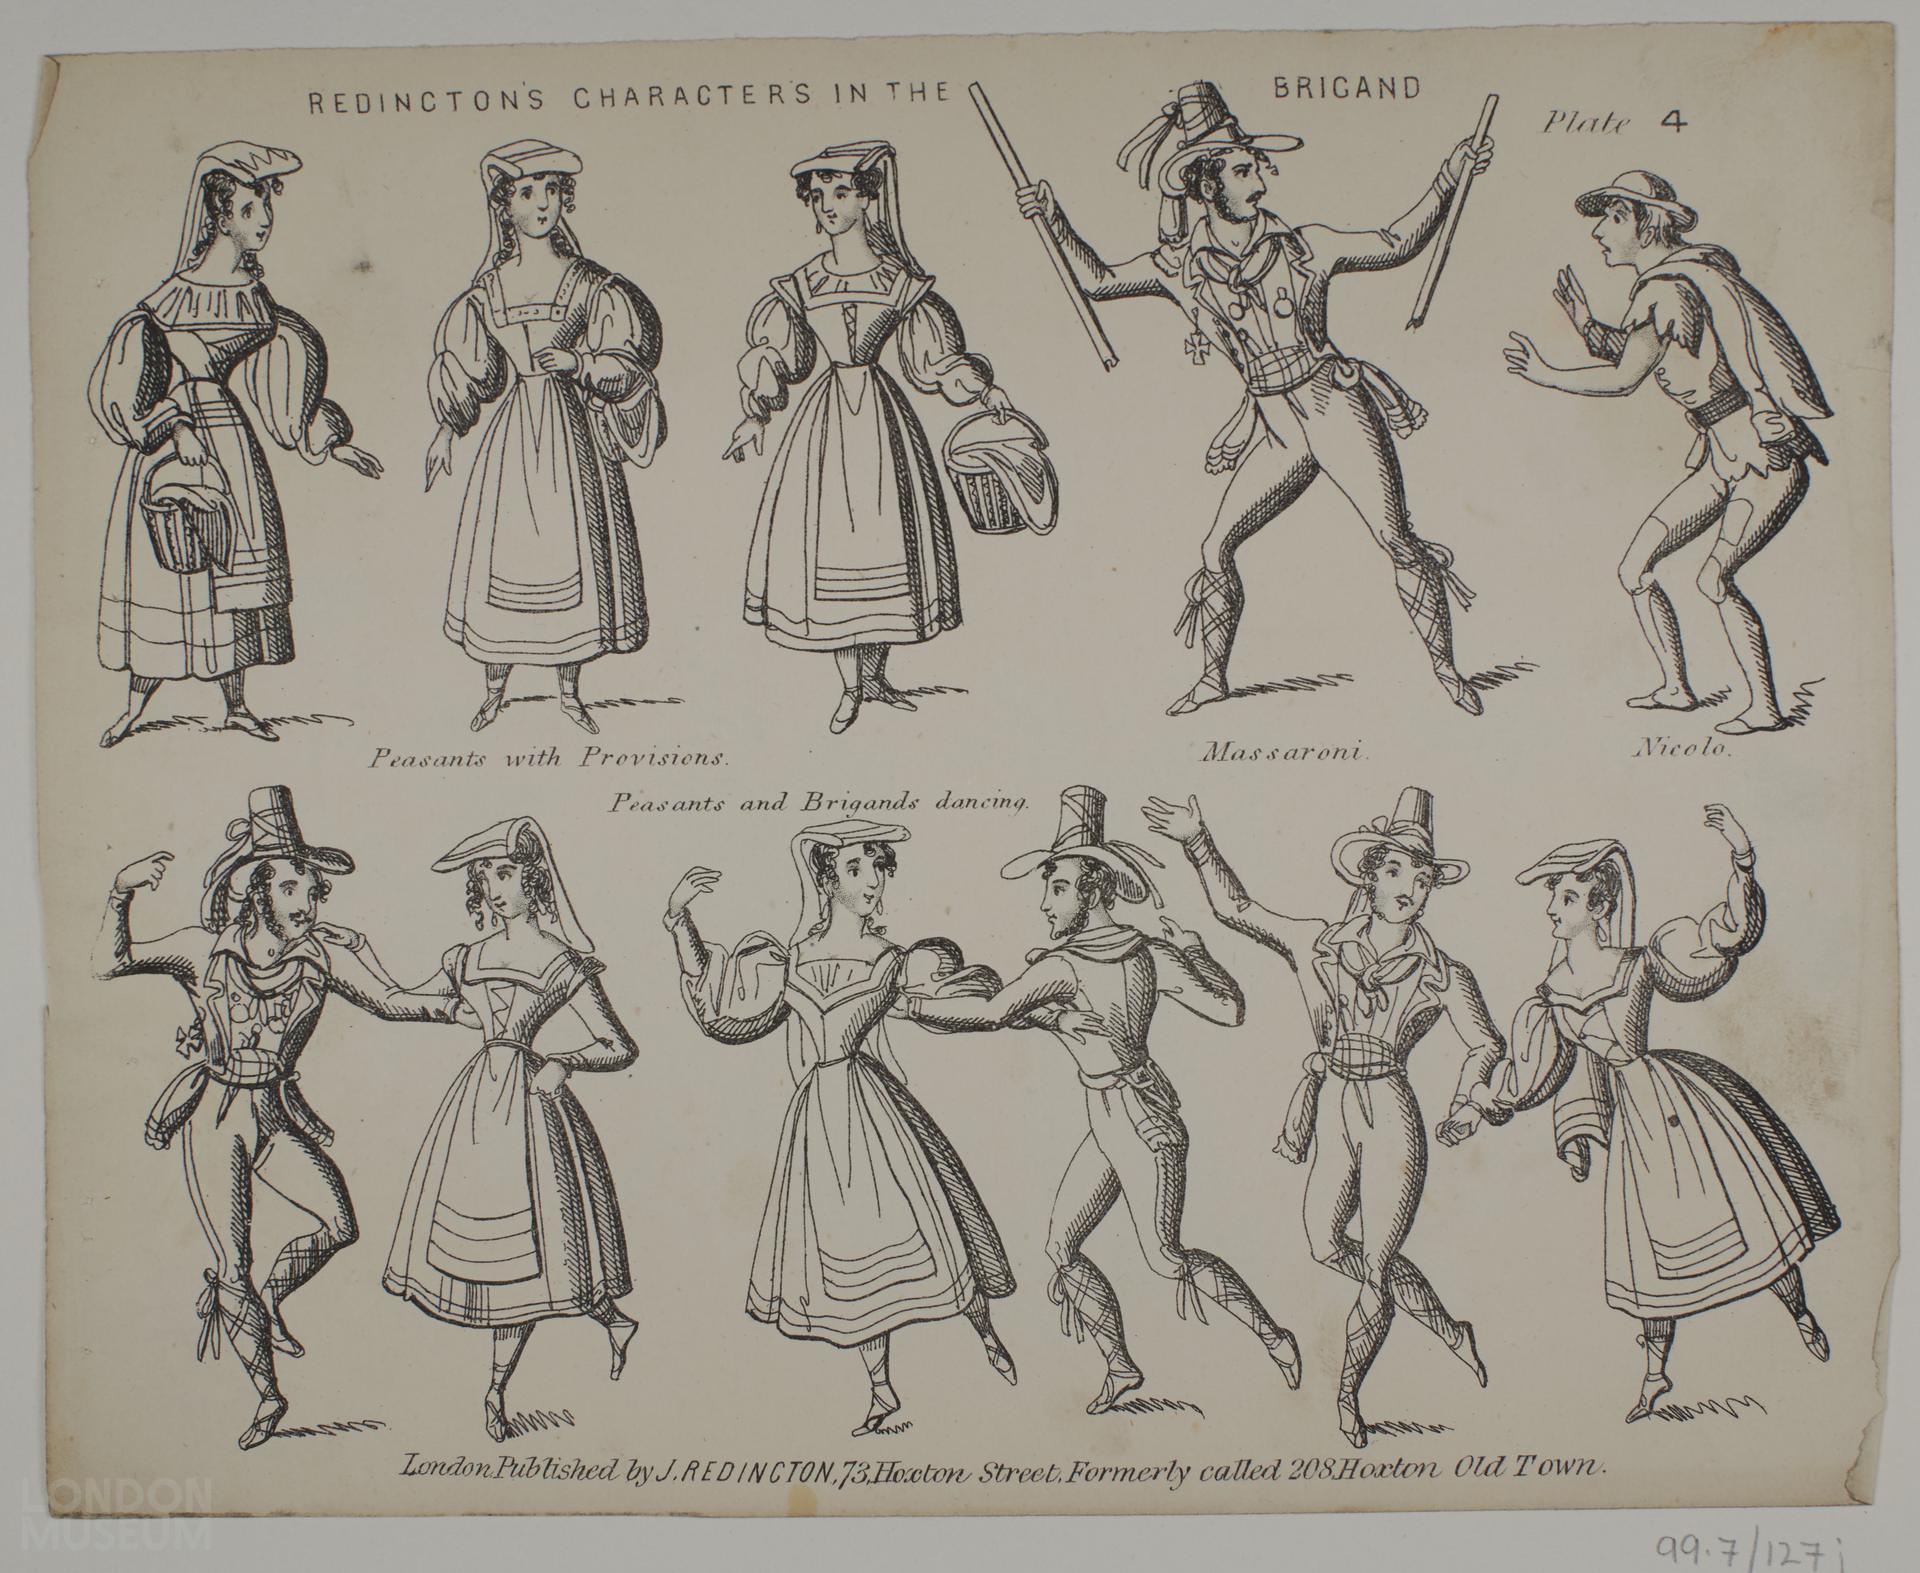 REDINGTON'S CHARACTERS IN THE BRIGAND
Plate 4
Peasants with Provisions.
Massaroni.
Nicolo.
Peasants and Brigands dancing.
London, Published by J. REDINGTON, 73, Hoxton Street, Formerly called 208, Hoxton Old Town.
LONDON
MUSEUM
99.7/127j